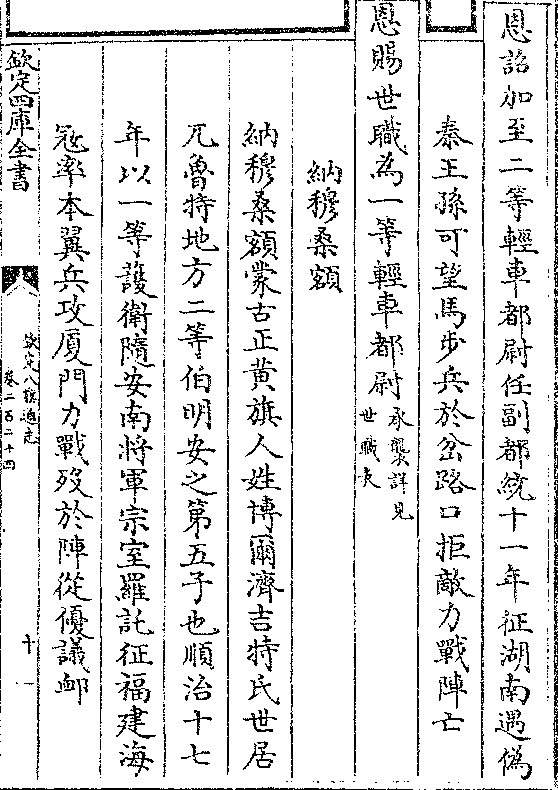 恩詔加至二等輕車都尉任副都統十一年征湖南遇偽
秦王孫可望馬步兵於岔路口拒敵力戰陣亡
恩賜世職為一等輕車都尉承襲詳見
世職表
納穆桑額
納穆桑額蒙古正黄旗人姓博爾濟吉特氏世居
兀魯特地方二等伯明安之第五子也順治十七
年以一等護衛隨安南將軍宗室羅託征福建海
冦率本翼兵攻厦門力戰歿於陣從優議䘏
欽定四庫全書
欽定八旗通志
卷二百二十四
十一